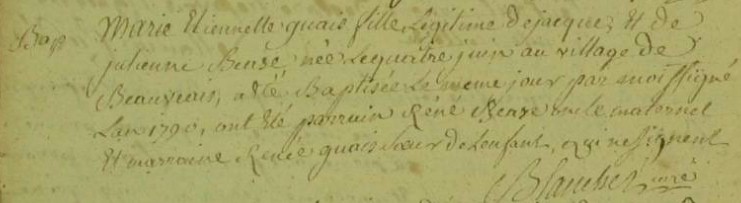 Bap Marie Etiennette quais fille Légitime de jacque, Et de
julienne Beuse née Lequatre juin au village de
Beauvais, a été Baptisée Le meme jour par moi Signé
Lan 1790, ont Eté parrain Réné Beuse oncle maternel
Et marraine Renée quais Soeur de Lenfant, qui ne Signent
Blanchet curé